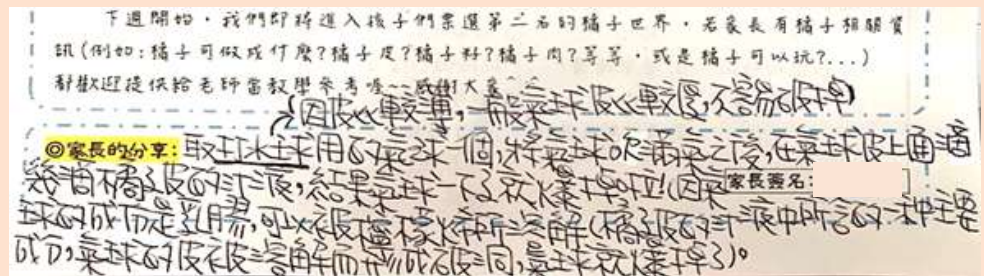 下週開始，我們即將進入孩子們票選第二名的橘子世界，若家長有橘子相關資
訊(例如:橘子可做成什麼?橘子皮?橘子籽?橘子肉?等等，或是橘子可以玩?...)
都歡迎提供給老師當教學參考喔~~感謝大家^^
(因皮比較薄，一般氣球皮比較厚，不容易破掉)
◎家長的分享:取打水球用的氣球一個，將氣球吹滿氣之後，在氣球皮上面滴
幾滴橘子皮的汁液，結果氣球一下子就爆掉啦!(因氣
家長簽名:
球的成份是乳膠，可以被檸檬烯所溶解(橘子皮的汁液中所含的一種主要
成份)，氣球的皮被溶解而形成破洞，氣球就爆掉了)。